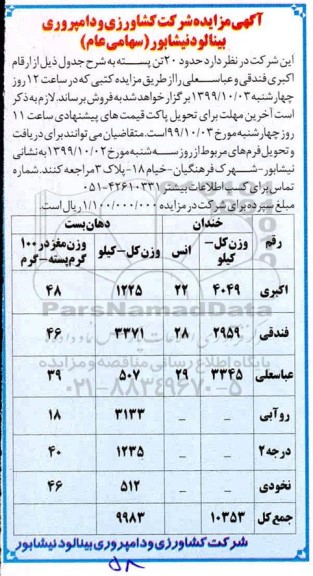 آگهی مزایده شرکت کشاورزی و دامپروری
بینالود نیشابور (سهامی عام)
این شرکت در نظر دارد حدود ۲۰ تن پسته به شرح جدول ذیل از ارقام
اکبری فندقی و عباسعلی را از طریق مزایده کتبی که در ساعت ۱۲ روز
چهارشنبه ۱۳۹۹/۱۰/۰۳ برگزار خواهد شد به فروش برساند. لازم به ذکر
است آخرین مهلت برای تحویل پاکت قیمت های پیشنهادی ساعت ۱۱
روز چهارشنبه مورخ ۹۹/۱۰/۰۳ است. متقاضیان می توانند برای دریافت
و تحویل فرم های مربوط از روز سه شنبه مورخ ۱۳۹۹/۱۰/۰۲ به نشانی
نیشابور - شهرک فرهنگیان - خیام ۱۸ - پلاک ۳ مراجعه کنند. شماره
تماس برای کسب اطلاعات بیشتر ۴۲۶۱۰۳۳۱-۰۵۱
مبلغ سپرده برای شرکت در مزایده ۱/۱۰۰/۰۰۰/۰۰۰ ریال است.
خندان دهان بست
رقم وزن کل - کیلو انس وزن کل - کیلو وزن مغز در ۱۰۰ گرم پسته - گرم
اکبری ۴۰۴۹ ۲۲ ۱۲۲۵ ۴۸
فندقی ۲۹۵۹ ۲۸ ۳۳۷۱ ۴۶
عباسعلی ۳۳۴۵ ۲۹ ۵۰۷ ۳۹
روآبی _ _ ۳۱۳۳ ۱۸
درجه ۲ _ _ ۱۲۳۵ ۴۰
نخودی _ _ ۵۱۲ ۴۶
جمع کل ۱۰۳۵۳ ۹۹۸۳
شرکت کشاورزی و دامپروری بینالود نیشابور
ParsNamadData
پایگاه اطلاع رسانی مناقصه و مزایده
۰۲۱-۸۸۳۴۹۶۷۰-۵